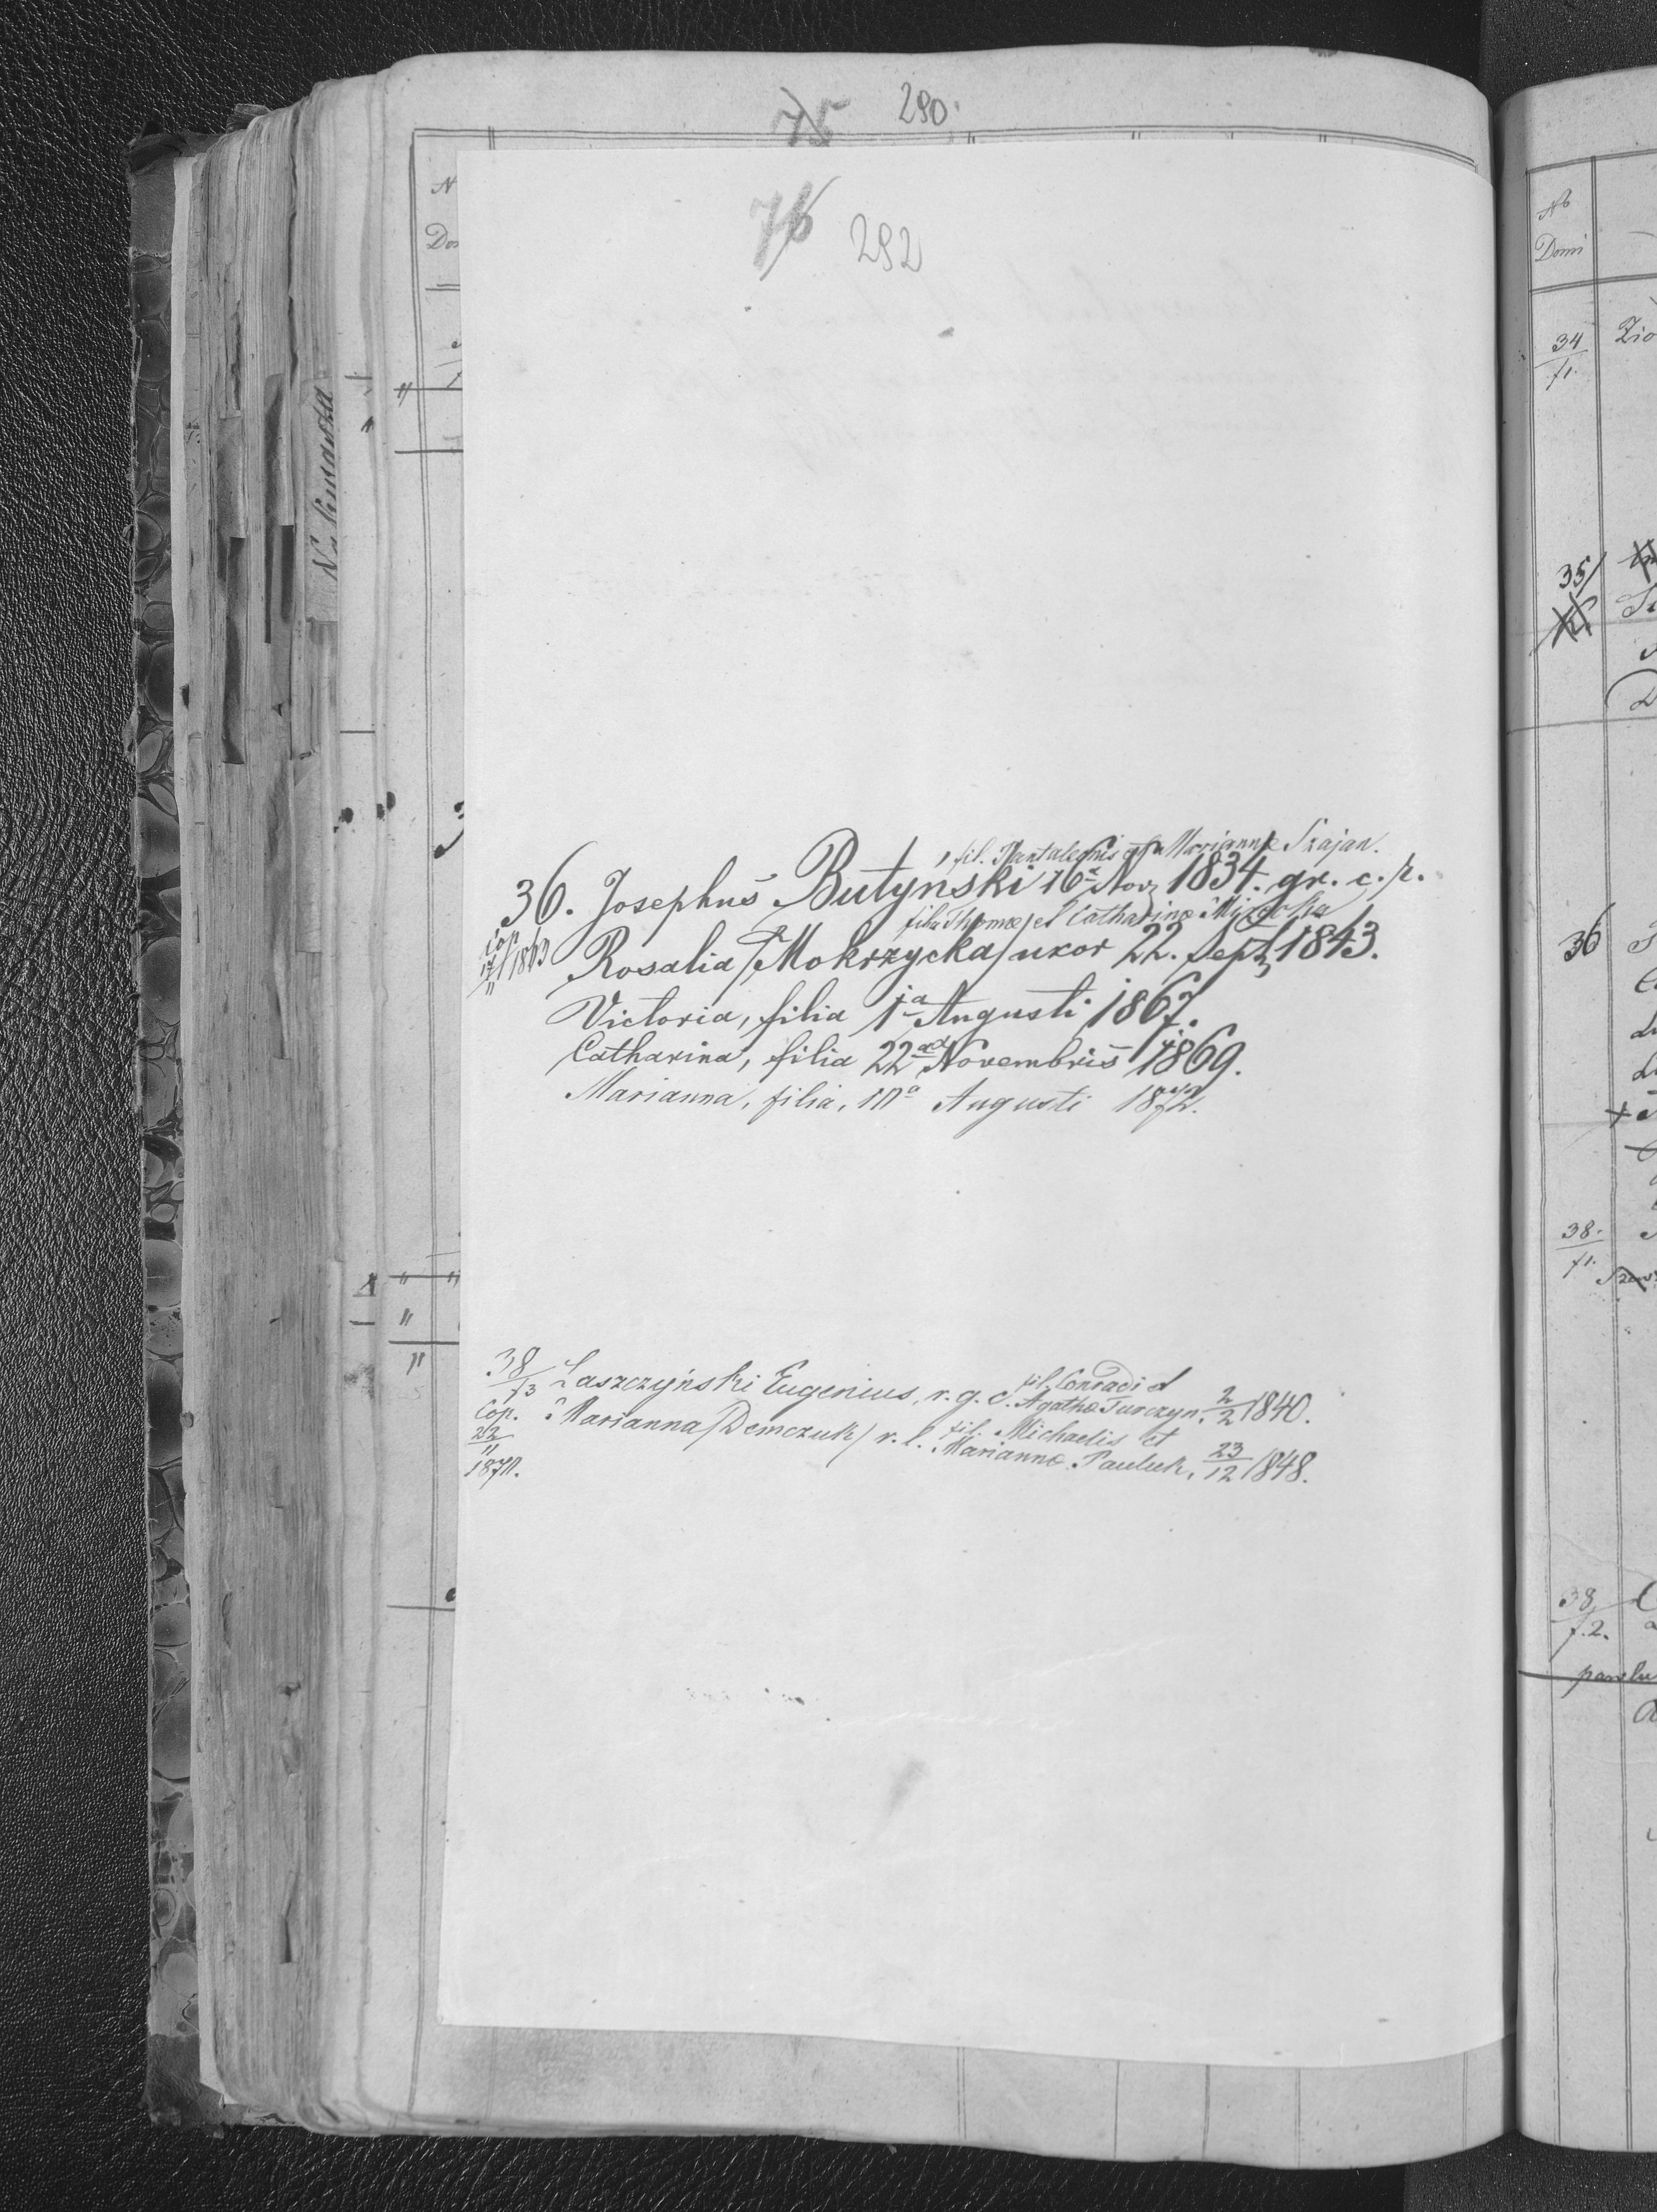 75 290.
76 292
N
Dom
fil. Pantaleonis et Mariannæ Szajan.
36. Josephus Butyński 16a Nov. 1834. gr. c. r.
filia Thomæ et Catharinæ
Cop. 17/11 1863 Rosalia /Mokrzycka/ uxor 22. Sept. 1843.
Victoria, filia 1a Augusti 1867.
Catharina, filia 22da Novembris 1869.
Marianna, filia, Augusti 1872.
38/f3 Laszczyński Eugenius, r. g. c. fil. Conradi et
Agathæ Turczyn, 2/2 1840.
Cop. Marianna /Demczuk/ r. l. fil. Michaelis et
22/11 Mariannæ Pauluk, 23/12 1848.
1870.
No
Domi
34
f1.
Zio
35
36
38.
f1.
38
f.2.